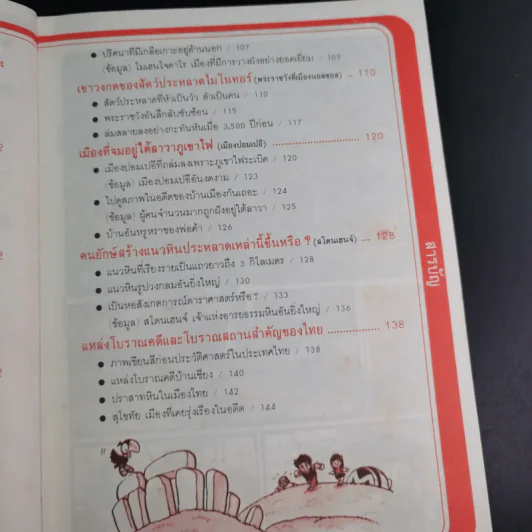 ● ปริศนาที่มีเกลือเกาะอยู่ด้านนอก / 107
(ข้อมูล) โมเฮนโจดาโร เมืองที่มีการวางผังอย่างยอดเยี่ยม / 109
เขาวงกตของสัตว์ประหลาดไมโนทอร์ (พระราชวังที่เมืองนอสซอส) .. 110
● สัตว์ประหลาดที่หัวเป็นวัว ตัวเป็นคน / 110
● พระราชวังอันลึกลับซับซ้อน / 115
● ล่มสลายลงอย่างกะทันหันเมื่อ 3,500 ปีก่อน / 117
เมืองที่จมอยู่ใต้ลาวาภูเขาไฟ (เมืองปอมเปอี) 120
● เมืองปอมเปอีที่ถล่มลงเพราะภูเขาไฟระเบิด / 120
(ข้อมูล) เมืองปอมเปอีอันงดงาม / 123
● ไปดูสภาพในอดีตของบ้านเมืองกันเถอะ / 124
(ข้อมูล) ผู้คนจำนวนมากถูกฝังอยู่ใต้ลาวา / 125
● บ้านอันหรูหราของพ่อค้า / 126
คนยักษ์สร้างแนวหินประหลาดเหล่านี้ขึ้นหรือ ? (สโตนเฮนจ์) ... 128
● แนวหินที่เรียงรายเป็นแถวยาวถึง 3 กิโลเมตร / 128
● แนวหินรูปวงกลมอันยิ่งใหญ่ / 130
● เป็นหอสังเกตการณ์ดาราศาสตร์หรือ ? / 133
(ข้อมูล) สโตนเฮนจ์ เจ้าแห่งอารยธรรมหินอันยิ่งใหญ่ / 136
แหล่งโบราณคดีและโบราณสถานสำคัญของไทย .................. 138
● ภาพเขียนสีก่อนประวัติศาสตร์ในประเทศไทย / 138
● แหล่งโบราณคดีบ้านเชียง / 140
● ปราสาทหินในเมืองไทย / 142
● สุโขทัย เมืองที่เคยรุ่งเรืองในอดีต / 144
สารบัญ